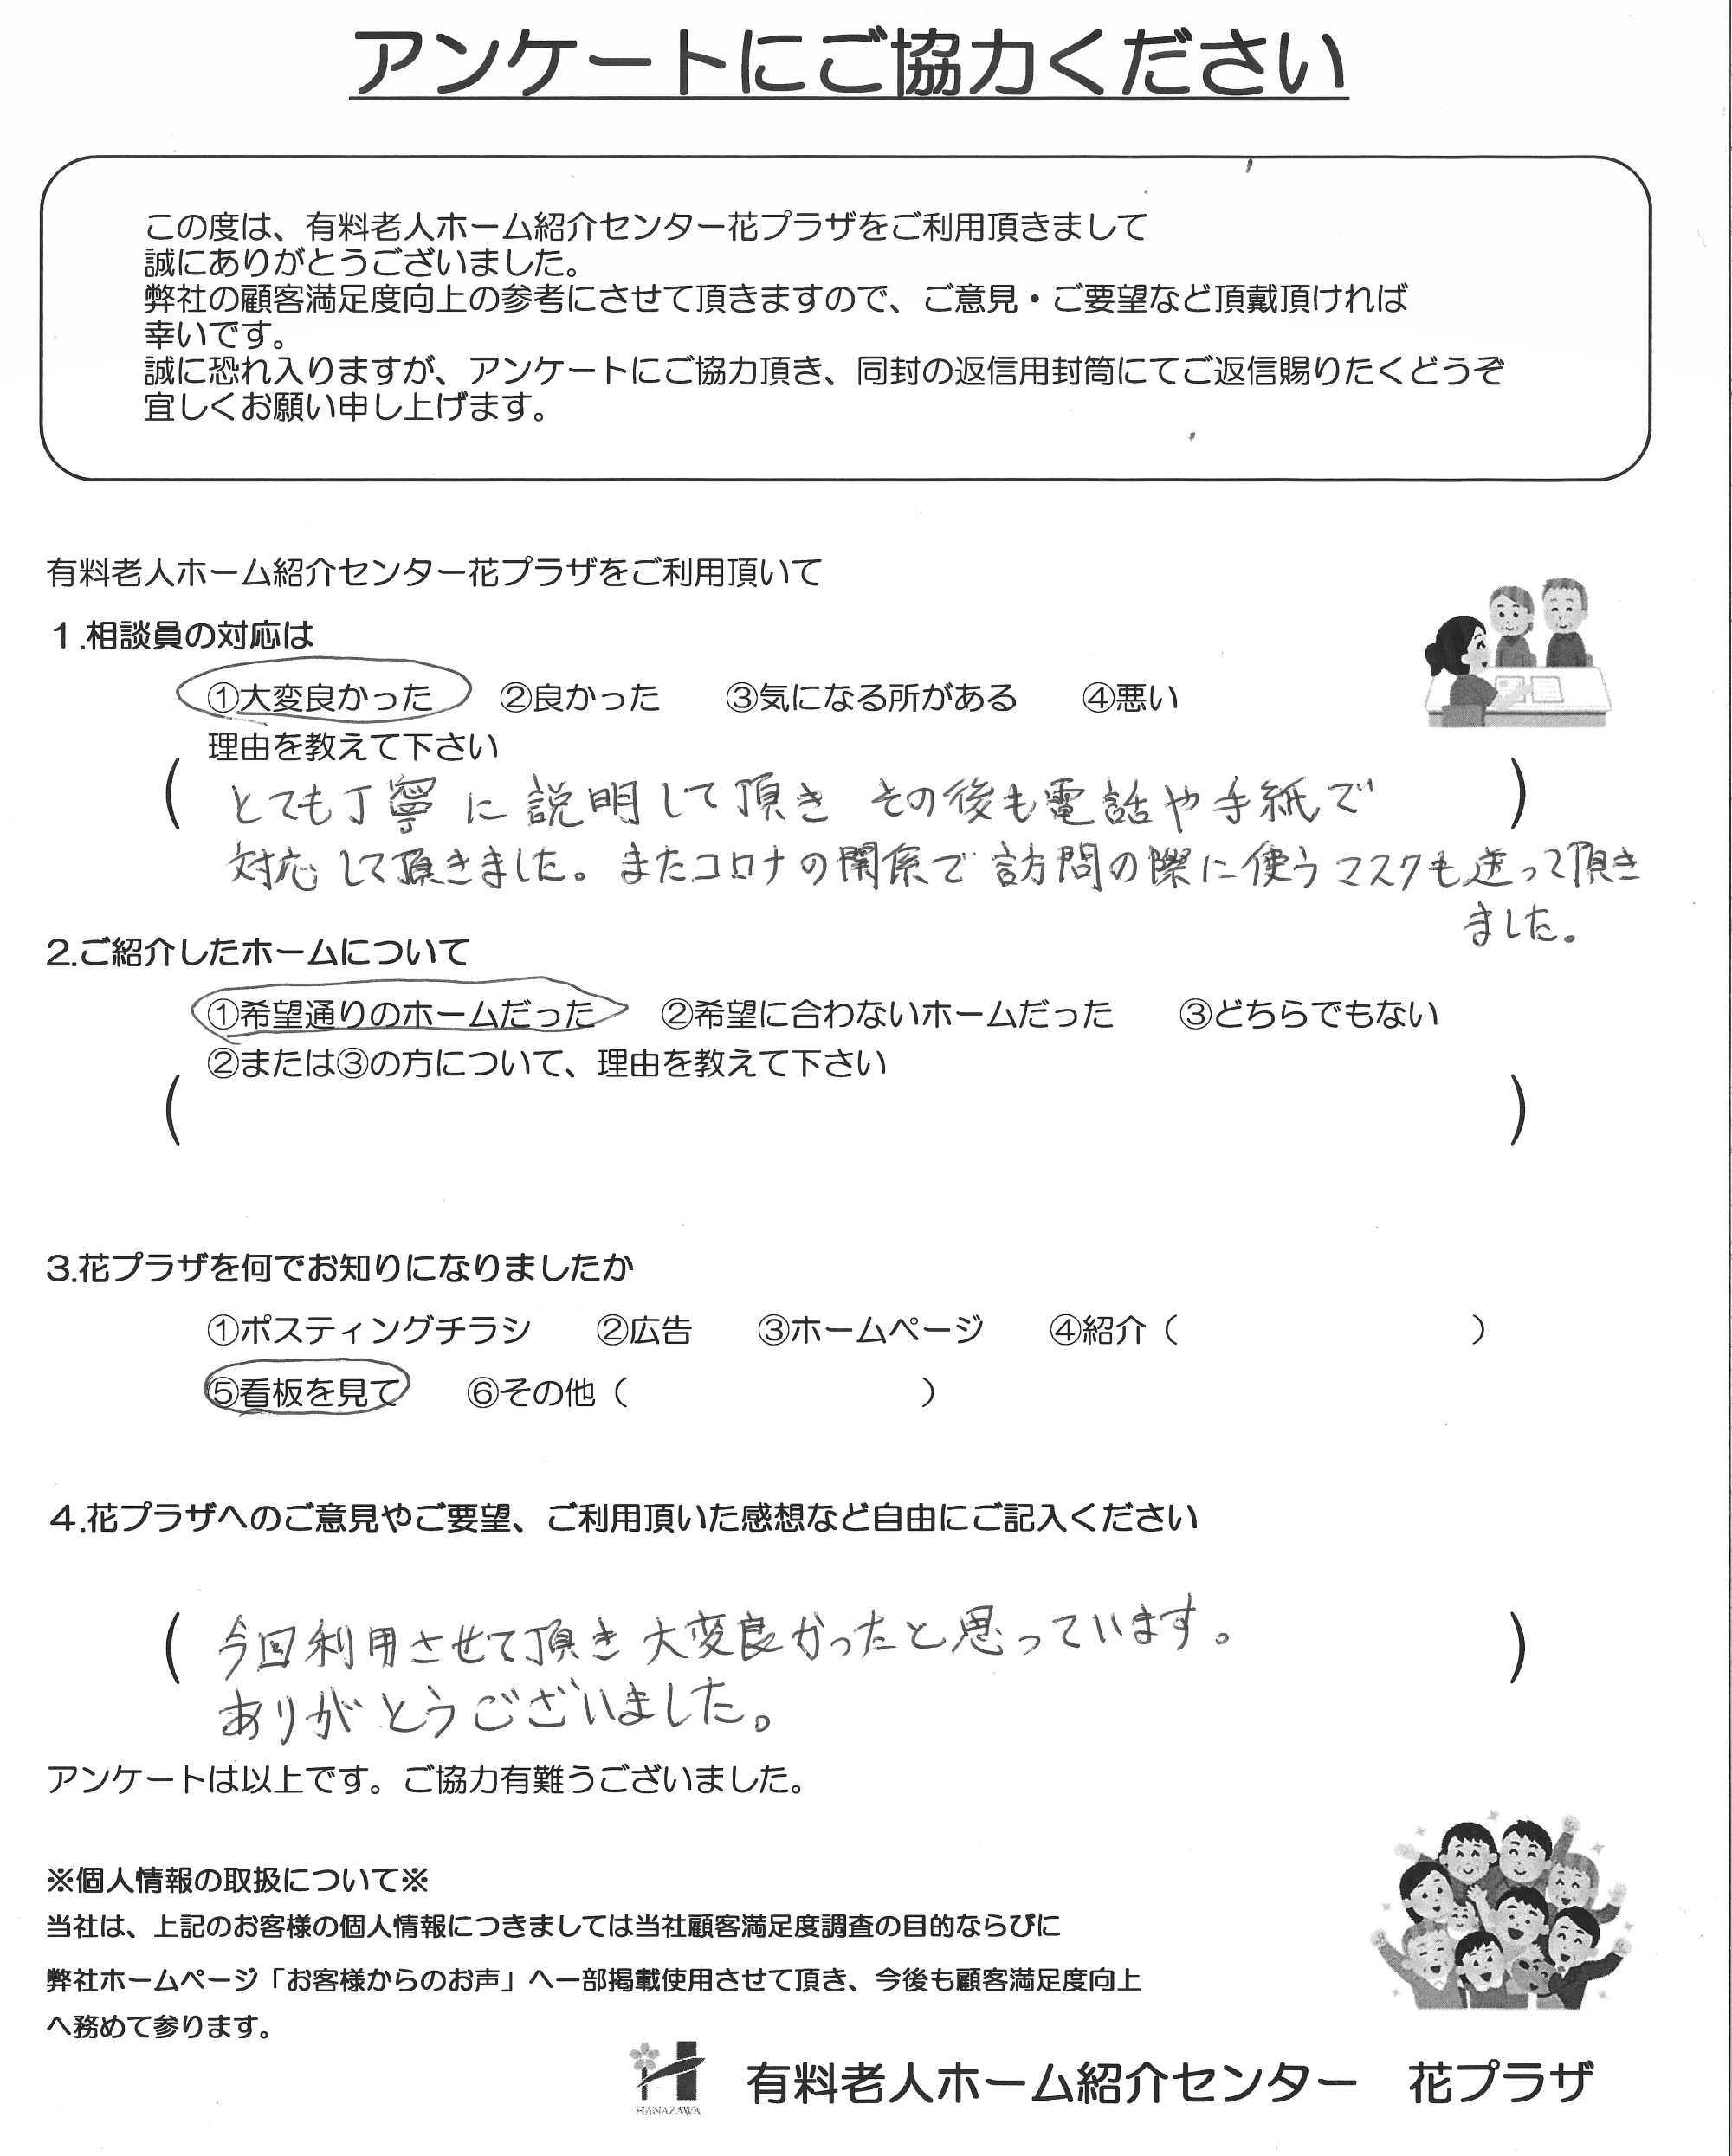 アンケートにご協力ください
この度は、有料老人ホーム紹介センター花プラザをご利用頂きまして
誠にありがとうございました。
弊社の顧客満足度向上の参考にさせて頂きますので、ご意見・ご要望など頂戴頂ければ
幸いです。
誠に恐れ入りますが、アンケートにご協力頂き、同封の返信用封筒にてご返信賜りたくどうぞ
宜しくお願い申し上げます。
有料老人ホーム紹介センター花プラザをご利用頂いて
１.相談員の対応は
①大変良かった　②良かった　③気になる所がある　④悪い
理由を教えて下さい
（とても丁寧に説明して頂き　その後も電話や手紙で）
対応して頂きました。またコロナの関係で訪問の際に使うマスクも送って頂き
ました。
2.ご紹介したホームについて
①希望通りのホームだった　②希望に合わないホームだった　③どちらでもない
②または③の方について、理由を教えて下さい
（　　　）
3.花プラザを何でお知りになりましたか
①ポスティングチラシ　②広告　③ホームページ　④紹介（　　　）
⑤看板を見て　⑥その他（　　　）
４.花プラザへのご意見やご要望、ご利用頂いた感想など自由にご記入ください
（今回利用させて頂き大変良かったと思っています。）
ありがとうございました。
アンケートは以上です。ご協力有難うございました。
※個人情報の取扱について※
当社は、上記のお客様の個人情報につきましては当社顧客満足度調査の目的ならびに
弊社ホームページ「お客様からのお声」へ一部掲載使用させて頂き、今後も顧客満足度向上
へ務めて参ります。
HANAZAWA
有料老人ホーム紹介センター　花プラザ